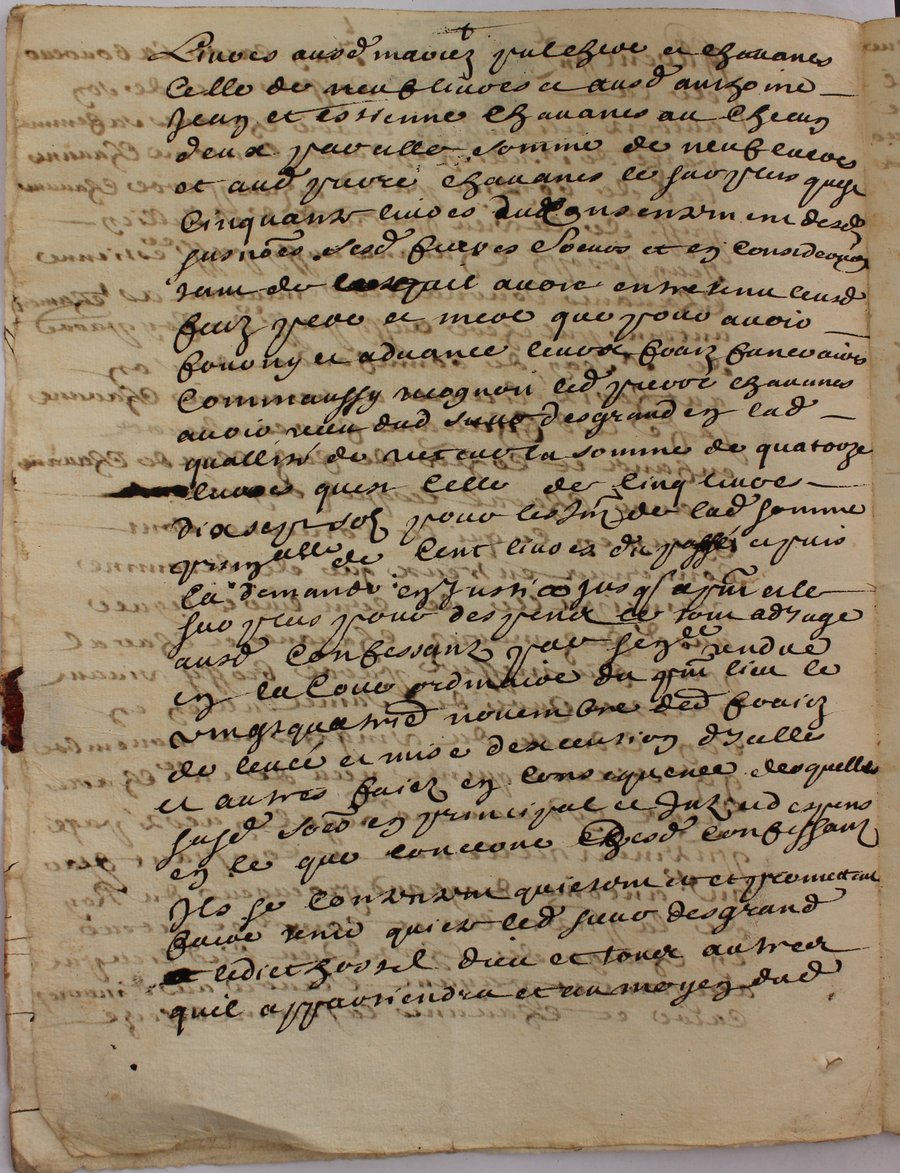 Livres ausd mariez pulchere et Chavanes
celle de neuf livres et ausd anthoine
Jean et estienne Chavanes au chacun
deux par.elle somme de neuf livres
et aud pierre Chavanes le surplus que
Cinquante livres du consentement desd
susnoes sesd freres soeurs et en consideraon
tant de ce quil avoit entretenu leursd
feuz pere et mere que pour avoir
fourny et advancé leurs fraiz funeraires
Comm'aussy recognoit led pierre Chavanes
avoir receu dud sieur desgrand en lad
quallité de recteur la somme de quatorze
livres quest celle de Cinq livres
dix sept solz pour les Intz de lad somme
prinzalle de Cent livres du passé et puis
la demande en Justice jusq a pnt et le
surplus pour despens le tout adjugé
ausd Confessantz par senzce rendue
en la Cour ordinaire du pnt lieu le
vingt quatrie novembre dud fraiz
de levée et mise d'execution d'Icelle
et autres faitz en Consequence desquelles
susd soes en principal et Intz et despens
en ce que concerne Chesd Confessantz
Ilz se Contentent quictent et promettent
faire tenir quicte led sieur desgrand
ledict hostel dieu et tous autres
quil appartiendra et au moyen dud